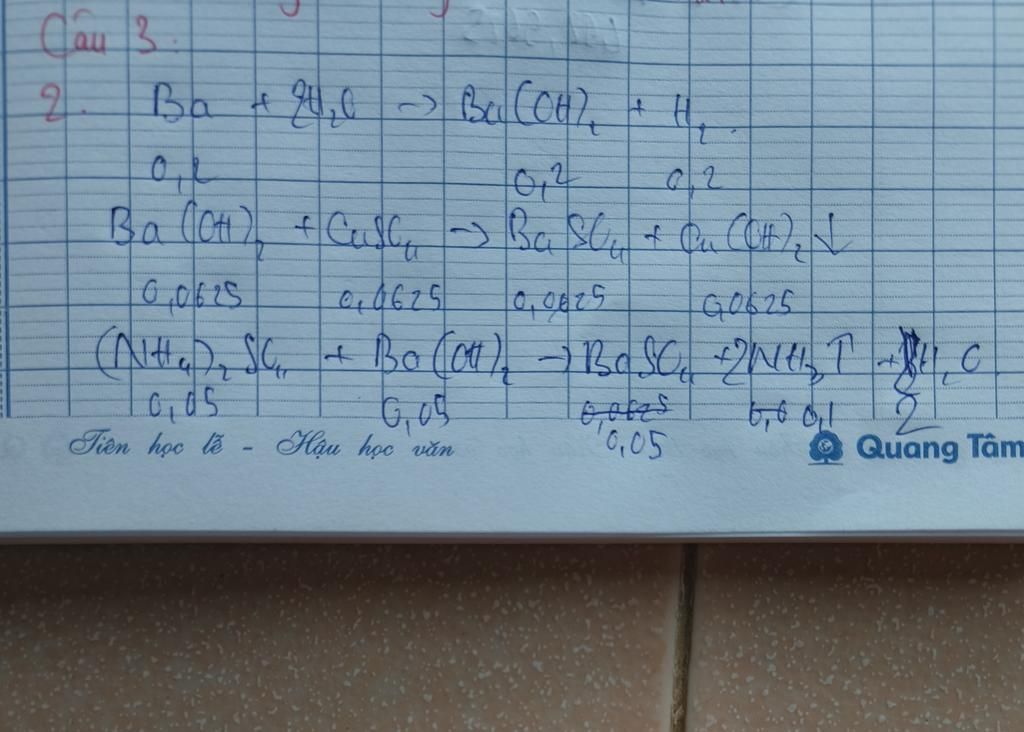 Câu 3.
2. Ba + 2H₂O → Ba(OH)₂ + H₂.
0,2 0,2 0,2
Ba(OH)₂ + CuSO₄ → BaSO₄ + Cu(OH)₂ ↓
0,0625 0,0625 0,0625 0,0625
(NH₄)₂SO₄ + Ba(OH)₂ → BaSO₄ + 2NH₃↑ + H₂O
0,05 0,05 0,0625 0,0 0,1 2
0,05
Tiên học lễ - Hậu học văn Quang Tâm